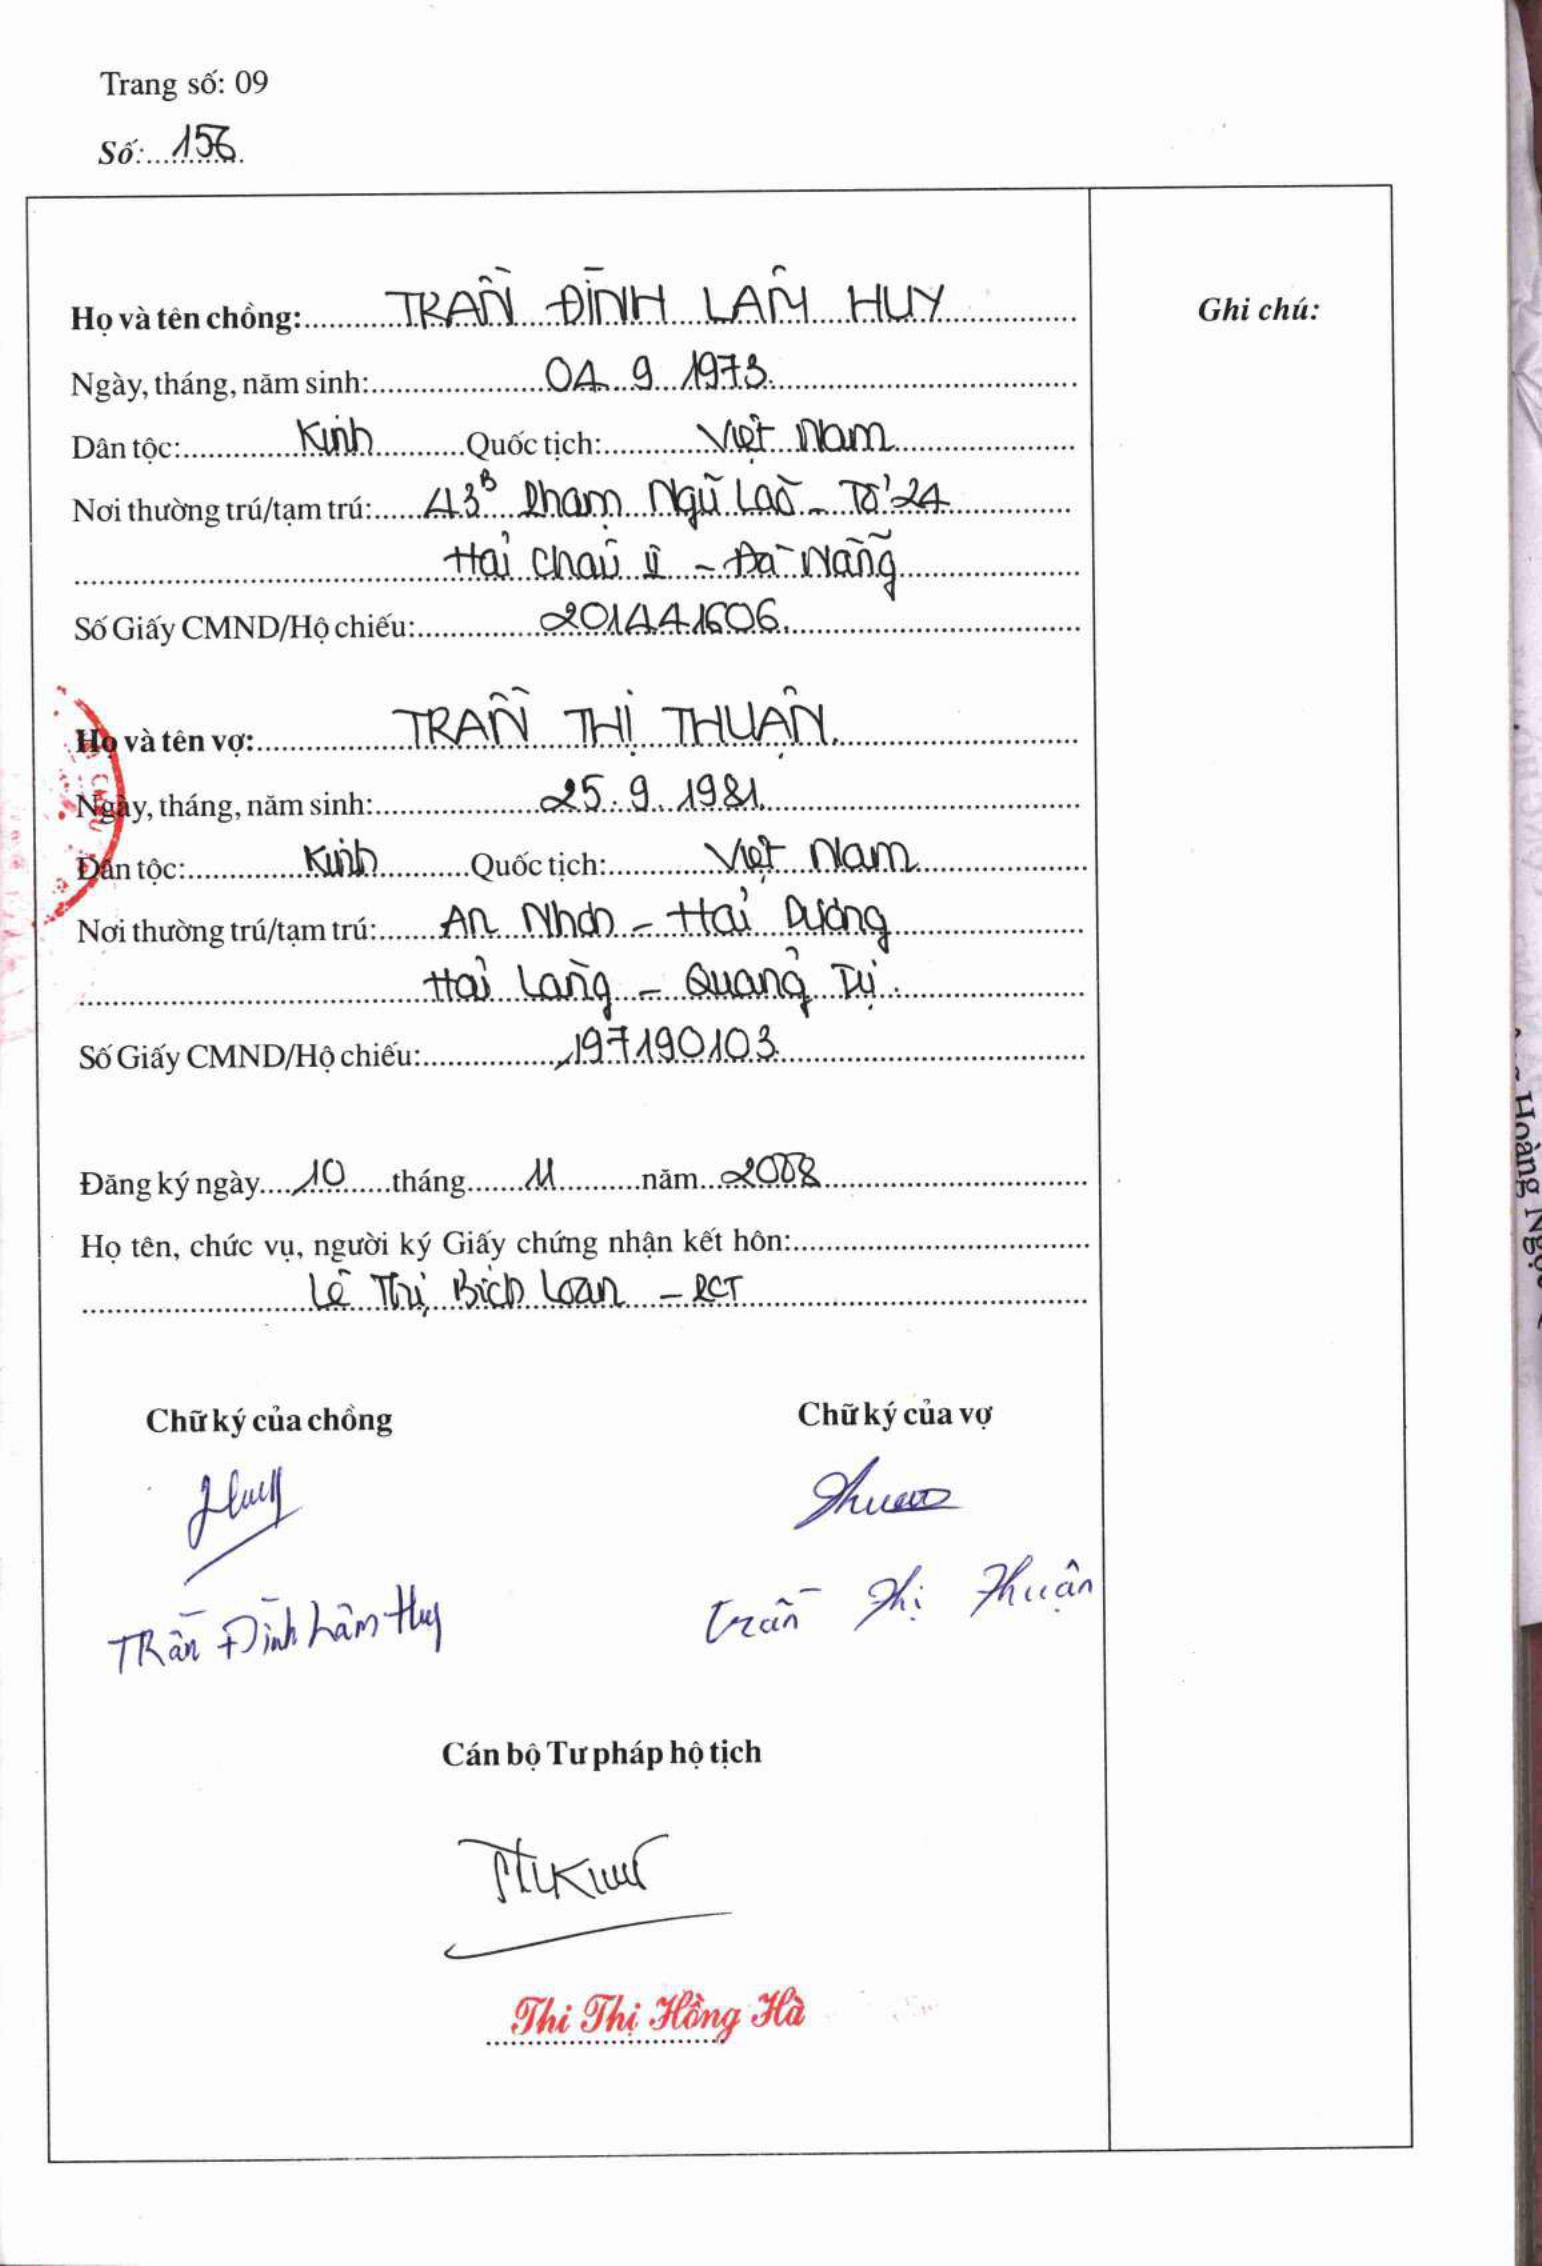 Trang số: 09
Số: 156
Họ và tên chồng: TRẦN ĐÌNH LÂM HUY
Ghi chú:
Ngày, tháng, năm sinh: 04.9.1973
Dân tộc: Kinh Quốc tịch: Việt Nam
Nơi thường trú/tạm trú: 43B Phạm Ngũ Lão - Tổ 24
Hải Châu II - Đà Nẵng
Số Giấy CMND/Hộ chiếu: 201441606
Họ và tên vợ: TRẦN THỊ THUẬN
Ngày, tháng, năm sinh: 25.9.1981
Dân tộc: Kinh Quốc tịch: Việt Nam
Nơi thường trú/tạm trú: An Nhơn - Hải Dương
Hải Lăng - Quảng Trị
Số Giấy CMND/Hộ chiếu: 197190103
Đăng ký ngày 10 tháng 11 năm 2008
Họ tên, chức vụ, người ký Giấy chứng nhận kết hôn:
Lê Thị Bích Loan - PCT
Chữ ký của chồng Chữ ký của vợ
Huy
Trần Đình Lâm Huy Trần Thị Thuận
Cán bộ Tư pháp hộ tịch
Thi Thị Hồng Hà
Hoàng Ngọc